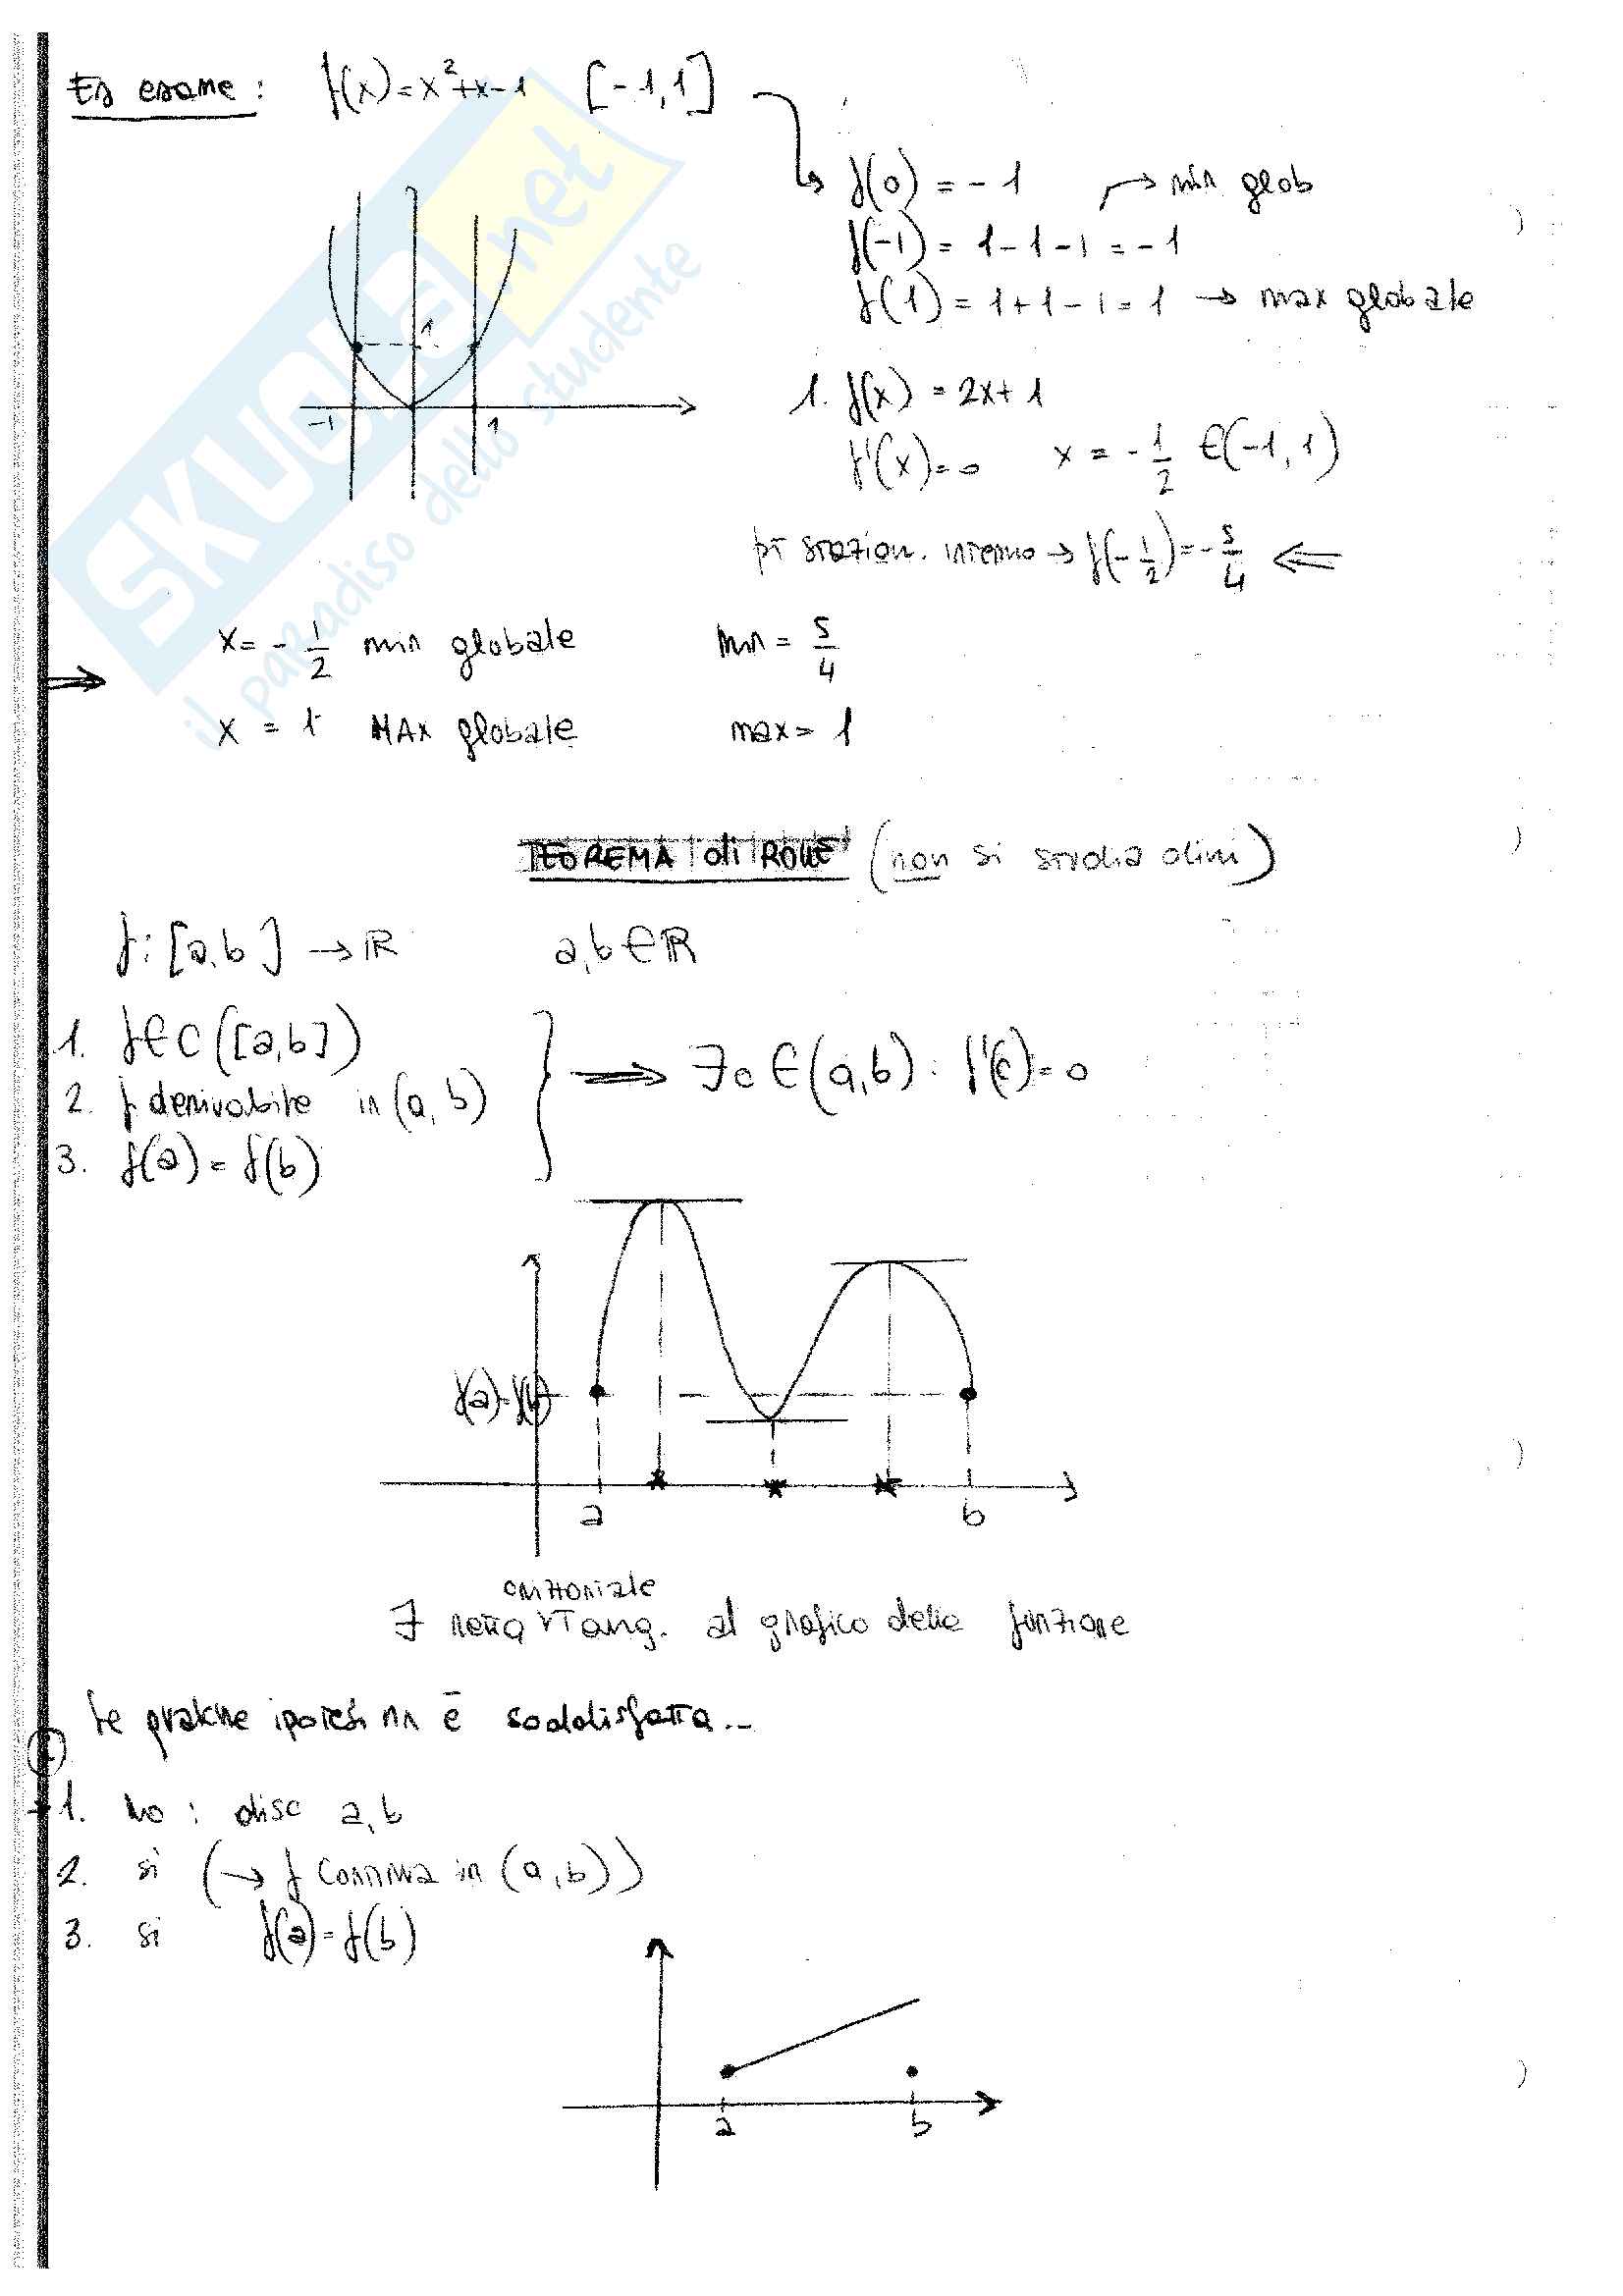 Es esame: f(x)=x²+x-1 [-1,1]
f(0) = -1 → min glob
f(-1) = 1-1-1 = -1
f(1) = 1+1-1 = 1 → max globale
1
-1 1
1. f(x) = 2x+1
f'(x)=0 x = -1/2 ∈(-1,1)
pt stazion. interno → f(-1/2)=-5/4 ⇐
x = -1/2 min globale min = 5/4
⇒
x = 1 MAX globale max = 1
TEOREMA di ROLLE (non si studia dim)
f: [a,b] → ℝ a,b ∈ ℝ
1. f∈C([a,b])
2. f derivabile in (a,b)
3. f(a) = f(b)
⇒ ∃c∈(a,b): f'(c)=0
f(a)=f(b)
a b
orizzontale
∃ retta tang. al grafico della funzione
Se qualche ipotesi nn è soddisfatta..
1. no: disc a,b
2. si (→ f continua in (a,b))
3. si f(a)=f(b)
a b
SKUOLA.net
il paradiso dello studente